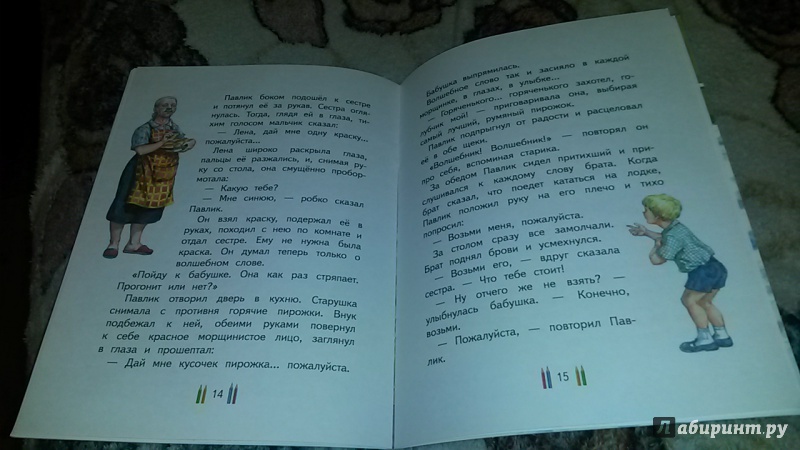 Павлик боком подошёл к сестре
и потянул её за рукав. Сестра огля-
нулась. Тогда, глядя ей в глаза, ти-
хим голосом мальчик сказал:
— Лена, дай мне одну краску...
пожалуйста...
Лена широко раскрыла глаза,
пальцы её разжались, и, снимая ру-
ку со стола, она смущённо пробор-
мотала:
— Какую тебе?
— Мне синюю, — робко сказал
Павлик.
Он взял краску, подержал её в
руках, походил с нею по комнате и
отдал сестре. Ему не нужна была
краска. Он думал теперь только о
волшебном слове.
«Пойду к бабушке. Она как раз стряпает.
Прогонит или нет?»
Павлик отворил дверь в кухню. Старушка
снимала с противня горячие пирожки. Внук
подбежал к ней, обеими руками повернул
к себе красное морщинистое лицо, заглянул
в глаза и прошептал:
— Дай мне кусочек пирожка... пожалуйста.
14
Бабушка выпрямилась.
Волшебное слово так и засияло в каждой
морщинке, в глазах, в улыбке...
— Горяченького... горяченького захотел, го-
лубчик мой! — приговаривала она, выбирая
самый лучший, румяный пирожок.
Павлик подпрыгнул от радости и расцеловал
её в обе щеки.
«Волшебник! Волшебник!» — повторял он
про себя, вспоминая старика.
За обедом Павлик сидел притихший и при-
слушивался к каждому слову брата. Когда
брат сказал, что поедет кататься на лодке,
Павлик положил руку на его плечо и тихо
попросил:
— Возьми меня, пожалуйста.
За столом сразу все замолчали.
Брат поднял брови и усмехнулся.
— Возьми его, — вдруг сказала
сестра. — Что тебе стоит!
— Ну отчего же не взять? —
улыбнулась бабушка. — Конечно,
возьми.
— Пожалуйста, — повторил Пав-
лик.
15
Лабиринт.ру